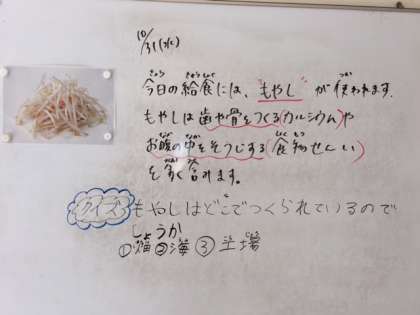 10/31(水)
今日の給食には、"もやし"が使われます。
もやしは歯や骨をつくる(カルシウム)や
お腹の中をそうじする(食物せんい)
を多く含みます。
クイズ もやしはどこでつくられているので
しょうか
①畑②海③工場